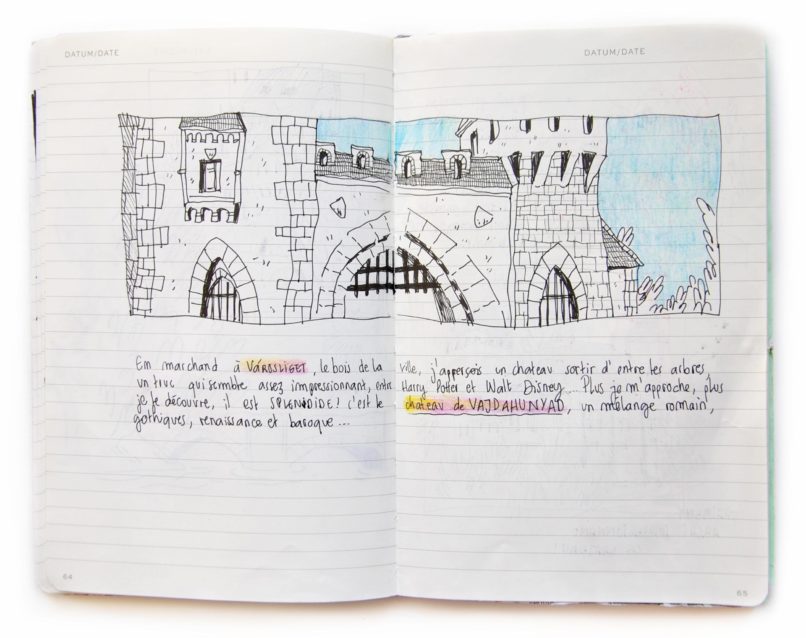 DATUM/DATE DATUM/DATE
En marchand à VÁROSLIGET, le bois de la ville, j'apperçois un chateau sortir d'entre les arbres,
un truc qui semble assez impressionnant, entre Harry Potter et Walt Disney... Plus je m'approche, plus
je le découvre, il est SPLENDIDE! c'est le chateau de VAJDAHUNYAD, un mélange romain,
gothiques, renaissance et baroque...
64 65